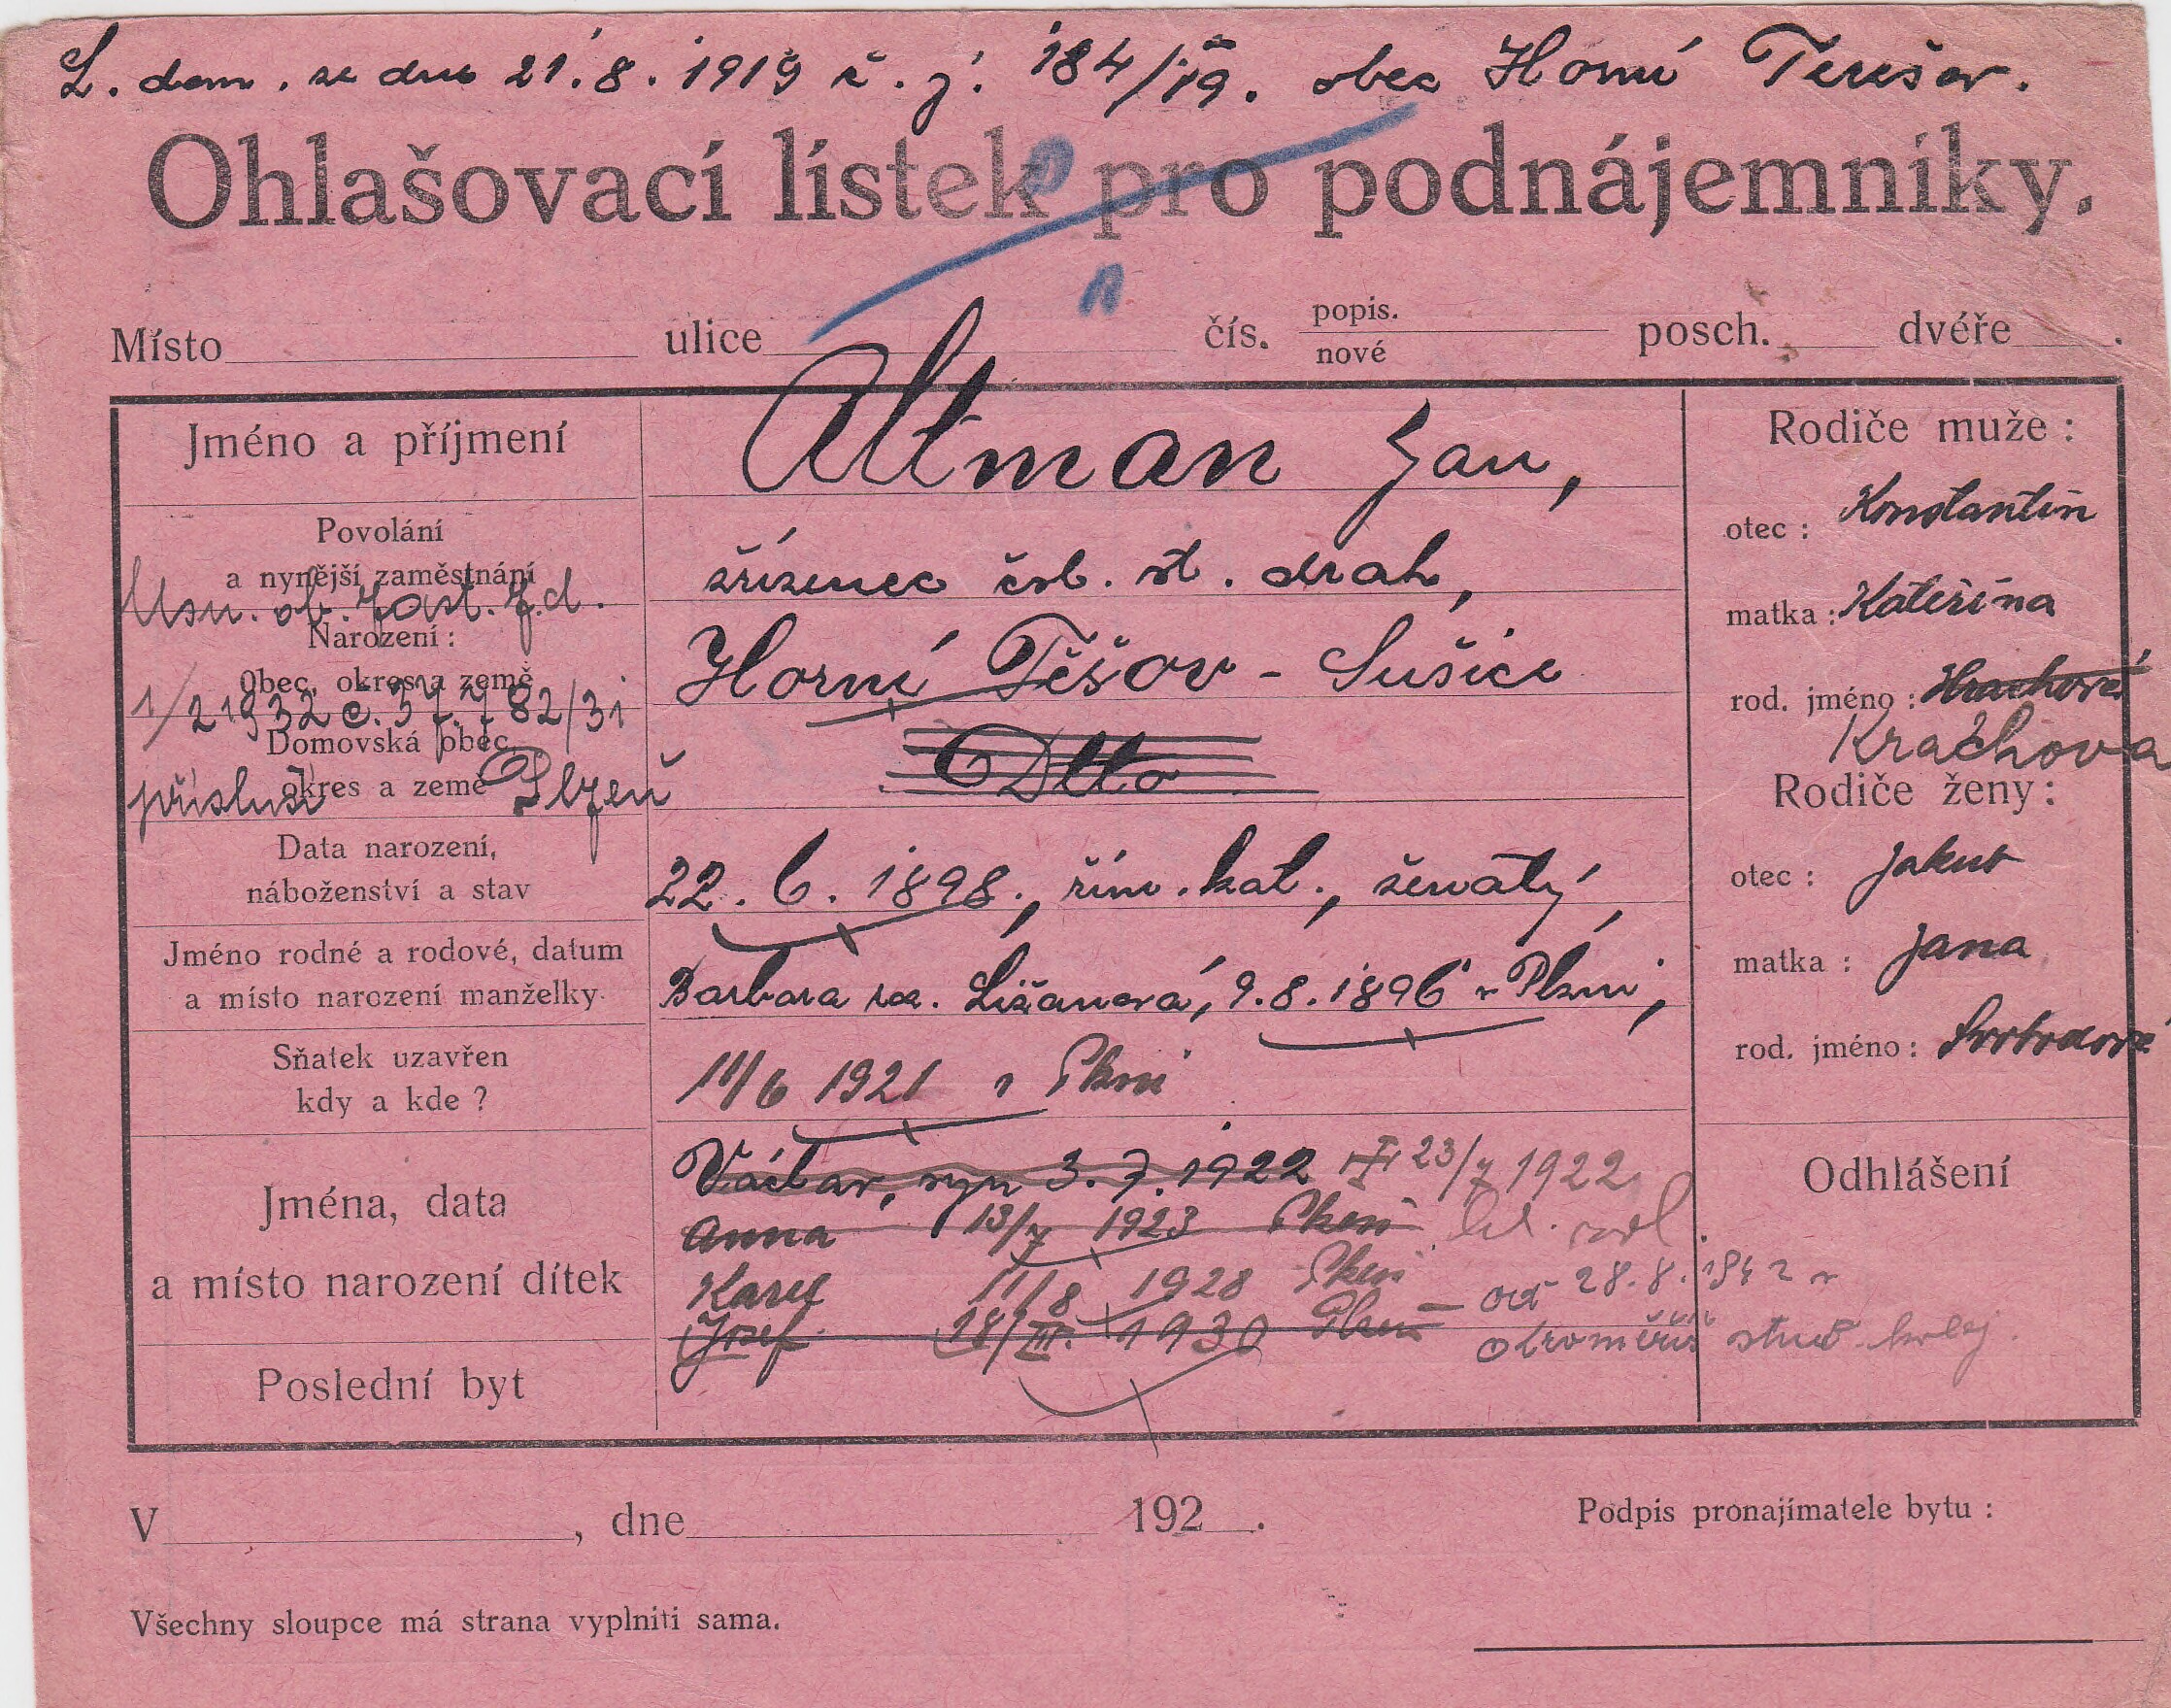 L. dom. ze dne 21.8.1919 č.j. 184/19. obec Horní Terešov.
Ohlašovací lístek pro podnájemníky.
Místo ulice čís. popis. nové posch. dvéře .
Jméno a příjmení
Altman Jan,
Povolání
a nynější zaměstnání
zřízenec čsl. st. drah,
Usn. ob. zast. z.d.
Narození:
Obec, okres a země
Horní Těšov - Sušice
1/2 1932 č. 57782/31
Domovská obec,
okres a země
přísluší Plzeň
Dtto
Data narození,
náboženství a stav
22. 6. 1898., řím. kat., ženatý,
Jméno rodné a rodové, datum
a místo narození manželky
Barbara roz. 9.8.1896 v Plzni,
Sňatek uzavřen
kdy a kde ?
11/6 1921 v Plzni
Jména, data
a místo narození dítek
Václav, syn 3.7.1922 23/7 1922
Anna 13/7 1923 Plzeň
Karel 11/8 1928 Plzeň
Josef 18/III. 1930 Plzeň – od 28.8.1942 v
stud. kolej
Poslední byt
Rodiče muže :
otec : Konstantin
matka : Kateřina
rod. jméno : Hrachová
Kráchova
Rodiče ženy :
otec : Jakub
matka : Jana
rod. jméno : Svobodová
Odhlášení
V , dne 192 .
Podpis pronajímatele bytu :
Všechny sloupce má strana vyplniti sama.